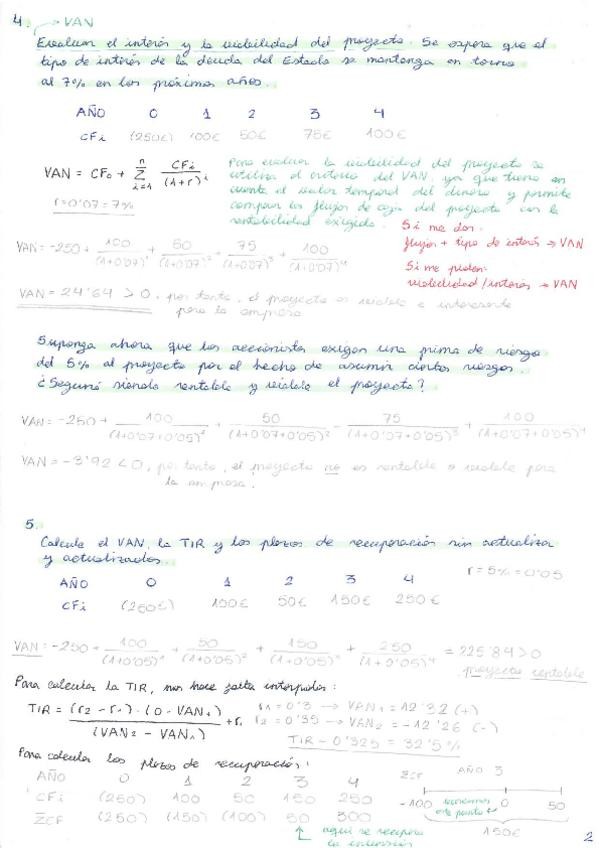 4. → VAN
Evaluar el interés y la viabilidad del proyecto. Se espera que el
tipo de interés de la deuda del Estado se mantenga en torno
al 7% en los próximos años.
AÑO 0 1 2 3 4
CFi (250€) 100€ 50€ 75€ 100€
VAN = CF₀ + Σ(i=1, n) CFi/(1+r)^i
r = 0'07 = 7%
Para evaluar la viabilidad del proyecto se
utiliza el criterio del VAN, ya que tiene en
cuenta el valor temporal del dinero y permite
comparar los flujos de caja del proyecto con la
rentabilidad exigida.
Si me dan:
flujos + tipo de interés → VAN
Si me piden:
viabilidad/interés → VAN
VAN = -250 + 100/(1+0'07)¹ + 50/(1+0'07)² + 75/(1+0'07)³ + 100/(1+0'07)⁴
VAN = 24'64 > 0, por tanto, el proyecto es viable e interesante
para la empresa
Suponga ahora que los accionistas exigen una prima de riesgo
del 5% al proyecto por el hecho de asumir ciertos riesgos.
¿Seguirá siendo rentable y viable el proyecto?
VAN = -250 + 100/(1+0'07+0'05)¹ + 50/(1+0'07+0'05)² 75/(1+0'07+0'05)³ + 100/(1+0'07+0'05)⁴
VAN = -3'92 < 0, por tanto, el proyecto no es rentable o viable para
la empresa.
5.
Calcule el VAN, la TIR y los plazos de recuperación sin actualizar
y actualizados.
r = 5% = 0'05
AÑO 0 1 2 3 4
CFi (250€) 100€ 50€ 150€ 250€
VAN = -250 + 100/(1+0'05)¹ + 50/(1+0'05)² + 150/(1+0'05)³ + 250/(1+0'05)⁴ = 225'84 > 0
proyecto rentable
Para calcular la TIR, nos hace falta interpolar:
TIR = (r₂ - r₁) · (0 - VAN₁)/(VAN₂ - VAN₁) + r₁
r₁ = 0'3 → VAN₁ = 12'32 (+)
r₂ = 0'35 → VAN₂ = -12'26 (-)
TIR = 0'325 = 32'5%
Para calcular los plazos de recuperación:
AÑO 0 1 2 3 4
CFi (250) 100 50 150 250
ΣCF (250) (150) (100) 50 300
↑ aquí se recupera
la inversión
ΣCF AÑO 3
-100 0 50
este punto
150€
2